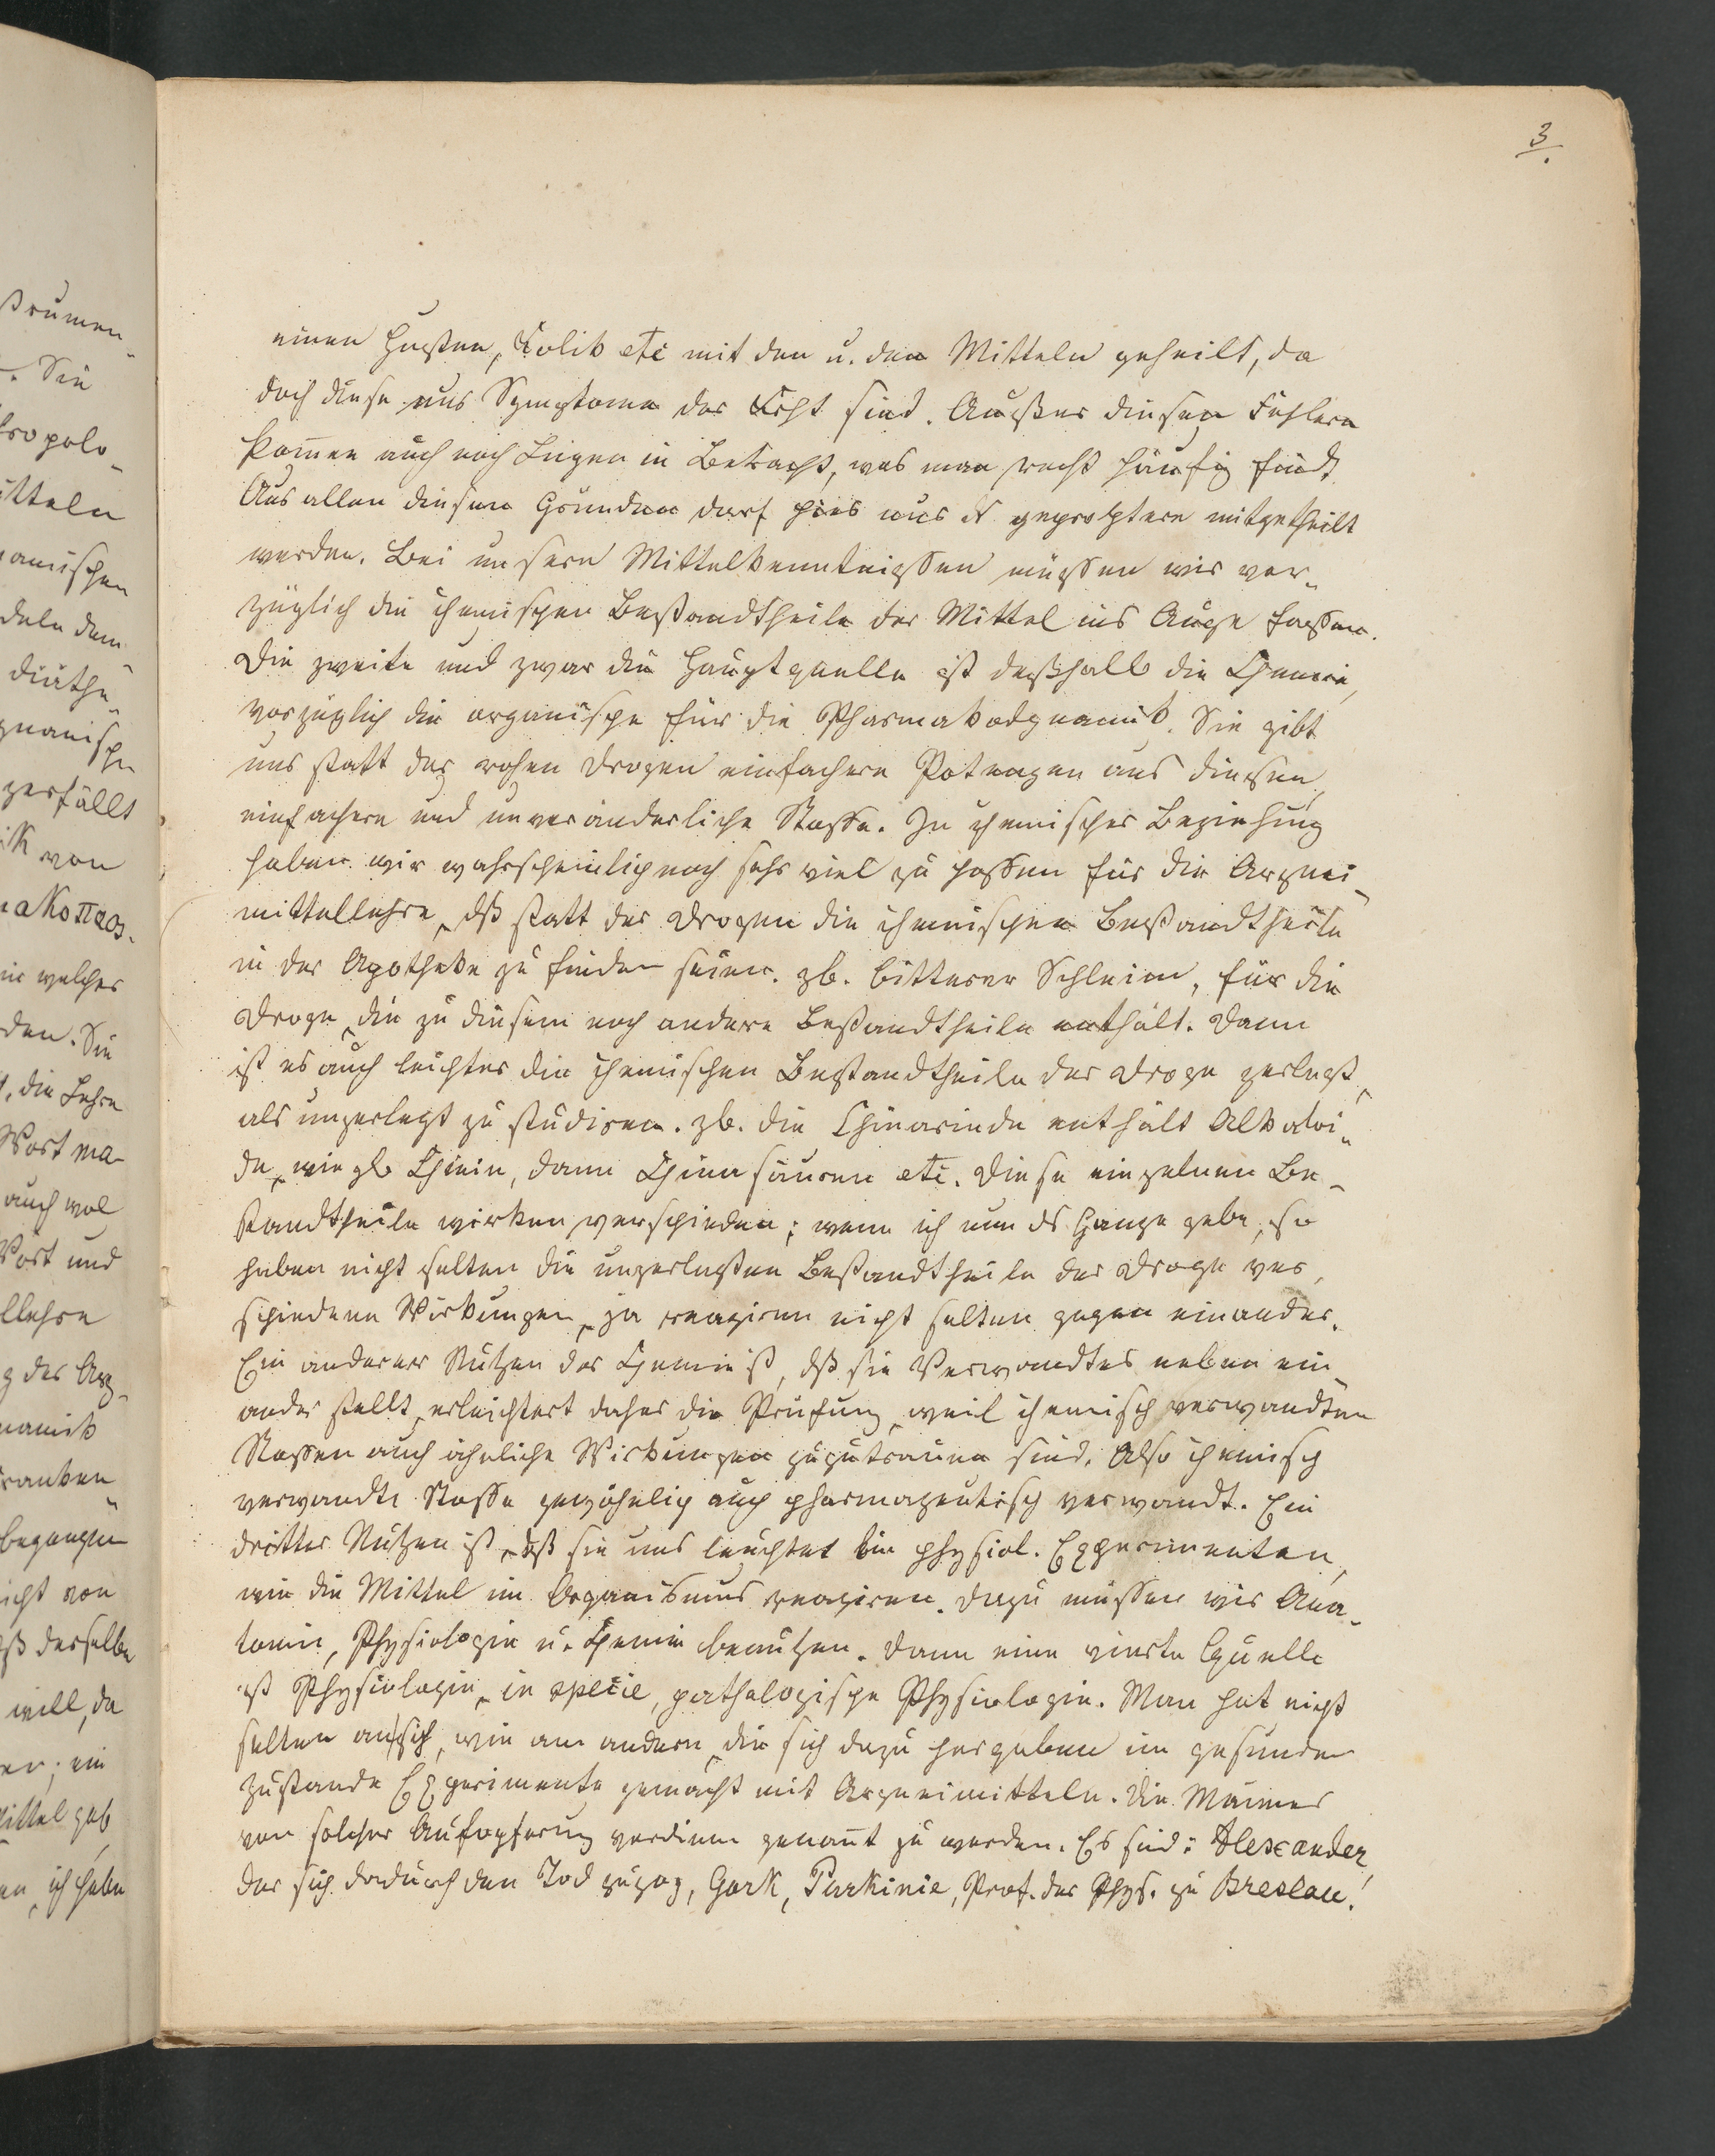 3.
einen Husten, Kolik etc mit den u. den Mitteln geheilt, da
doch diese nur Symptome der sind. Außer diesen Fehlern
kom̄en auch noch Lügen in Betracht, was man recht häufig findt.
Aus allen diesen Gründen darf hier nur mitgetheilt
werden. Bei unsern Mittelkenntnissen müssen wir vor-
züglich die chemischen Bestandtheile der Mittel ins Auge fassen.
Die zweite und zwar die Hauptquelle ist deßhalb die Chemie,
vorzüglich die organische für die Pharmakodynamik. Sie gibt
uns statt der rohen Drogen einfachere Potenzen aus diesen,
einfachere und unveränderliche Stoffe. In chemischer Beziehung
haben wir wahrscheinlich noch sehr viel zu hoffen für die Arznei-
mittellehre, dß statt der Drogen die chemischen Bestandtheile
in der Apotheke zu finden seien. zb. bitterer Schleim, für die
Droge, die zu diesem noch andere Bestandtheile enthält. Dann
ist es auch leichter die chemischen Bestandtheile der Droge zerlegt,
als unzerlegt zu studiren. zb. die Chinarinde enthält Alkaloi-
de, wie zb Chinin, dann Chinasäuren etc. Diese einzelnen Be-
standtheile wirken verschieden; wenn ich nun ds Ganze gebe, so
haben nicht selten die unzerlegten Bestandtheile der Droge ver-
schiedene Wirkungen, ja reagiren nicht selten gegen einander.
Ein anderer Nutzen der Chemie ist, dß sie Verwandtes neben ein-
ander stellt, erleichtert daher die Prüfung, weil chemisch verwandten
Stoffen auch ähnliche Wirkungen zuzutrauen sind. Also chemisch
verwandte Stoffe gewöhnlich auch pharmazeutisch verwandt. Ein
dritter Nutzen ist, dß sie uns leuchtet bei physiol. Experimenten,
wie die Mittel im Organismus reagiren. Dazu müssen wir Ana-
tomie, Physiologie u. Chemie benutzen. Dann eine vierte Quelle
ist Physiologie, in specie, pathologische Physiologie. Man hat nicht
selten an sich, wie an andern, die sich dazu hergaben im gesunden
Zustande Experimente gemacht mit Arzneimitteln. Die Männer
von solcher Aufopferung verdienen genan̄t zu werden. Es sind: Alexander,
der sich dadurch den Tod zuzog, Gork, Purkinie, Prof. der Phys. zu Breslau!